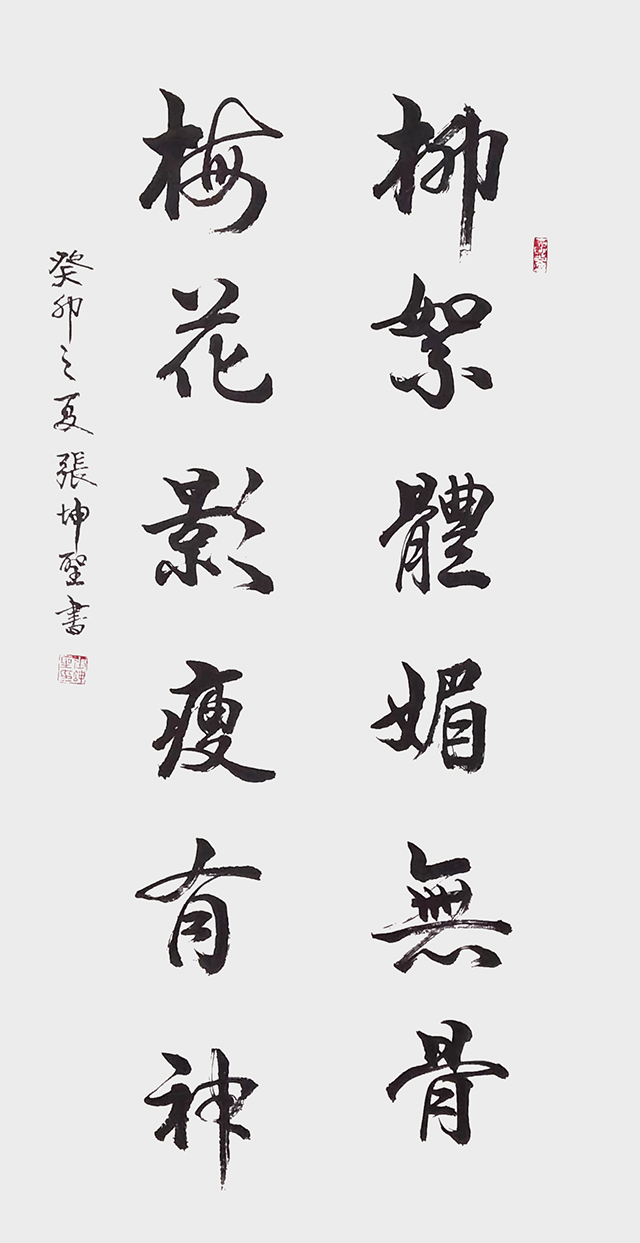 柳絮體媚無骨
梅花影瘦有神
癸卯之夏張坤聖書